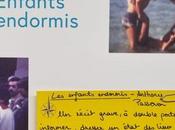 Enfants
endormis
Les enfants endormis - Anthony
Passeron
* Un récit grave, à double porté
intime, dresser un état des lieux